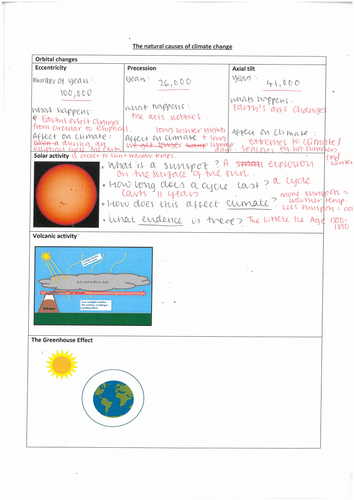 The natural causes of climate change
Orbital changes
Eccentricity
Number of years:
100,000
What happens:
Earths orbit changes
from circular to elliptical
Affect on climate:
during an
elliptical cycle the earth
is closer to sun = warmer times.
Precession
Years: 26,000
What happens:
the axis wobbles.
Long winter nights
Affect on climate + long
summer
days
Axial tilt
Years:
41,000
Whats happens:
Earth's axis changes
Affect on climate:
Extremes to climate /
seasons eg hot summers,
cold
winters
Solar activity
• What is a sunspot? A explosion
on the surface of the sun.
• How long does a cycle last? a cycle
lasts 11 years
• How does this affect climate?
more sunspots =
warmer temp.
Less sunspots =
• What evidence is there? The Little Ice Age 1300-
1850
Volcanic activity
Ash and Sulfuric Acid
Volcano
The Greenhouse Effect